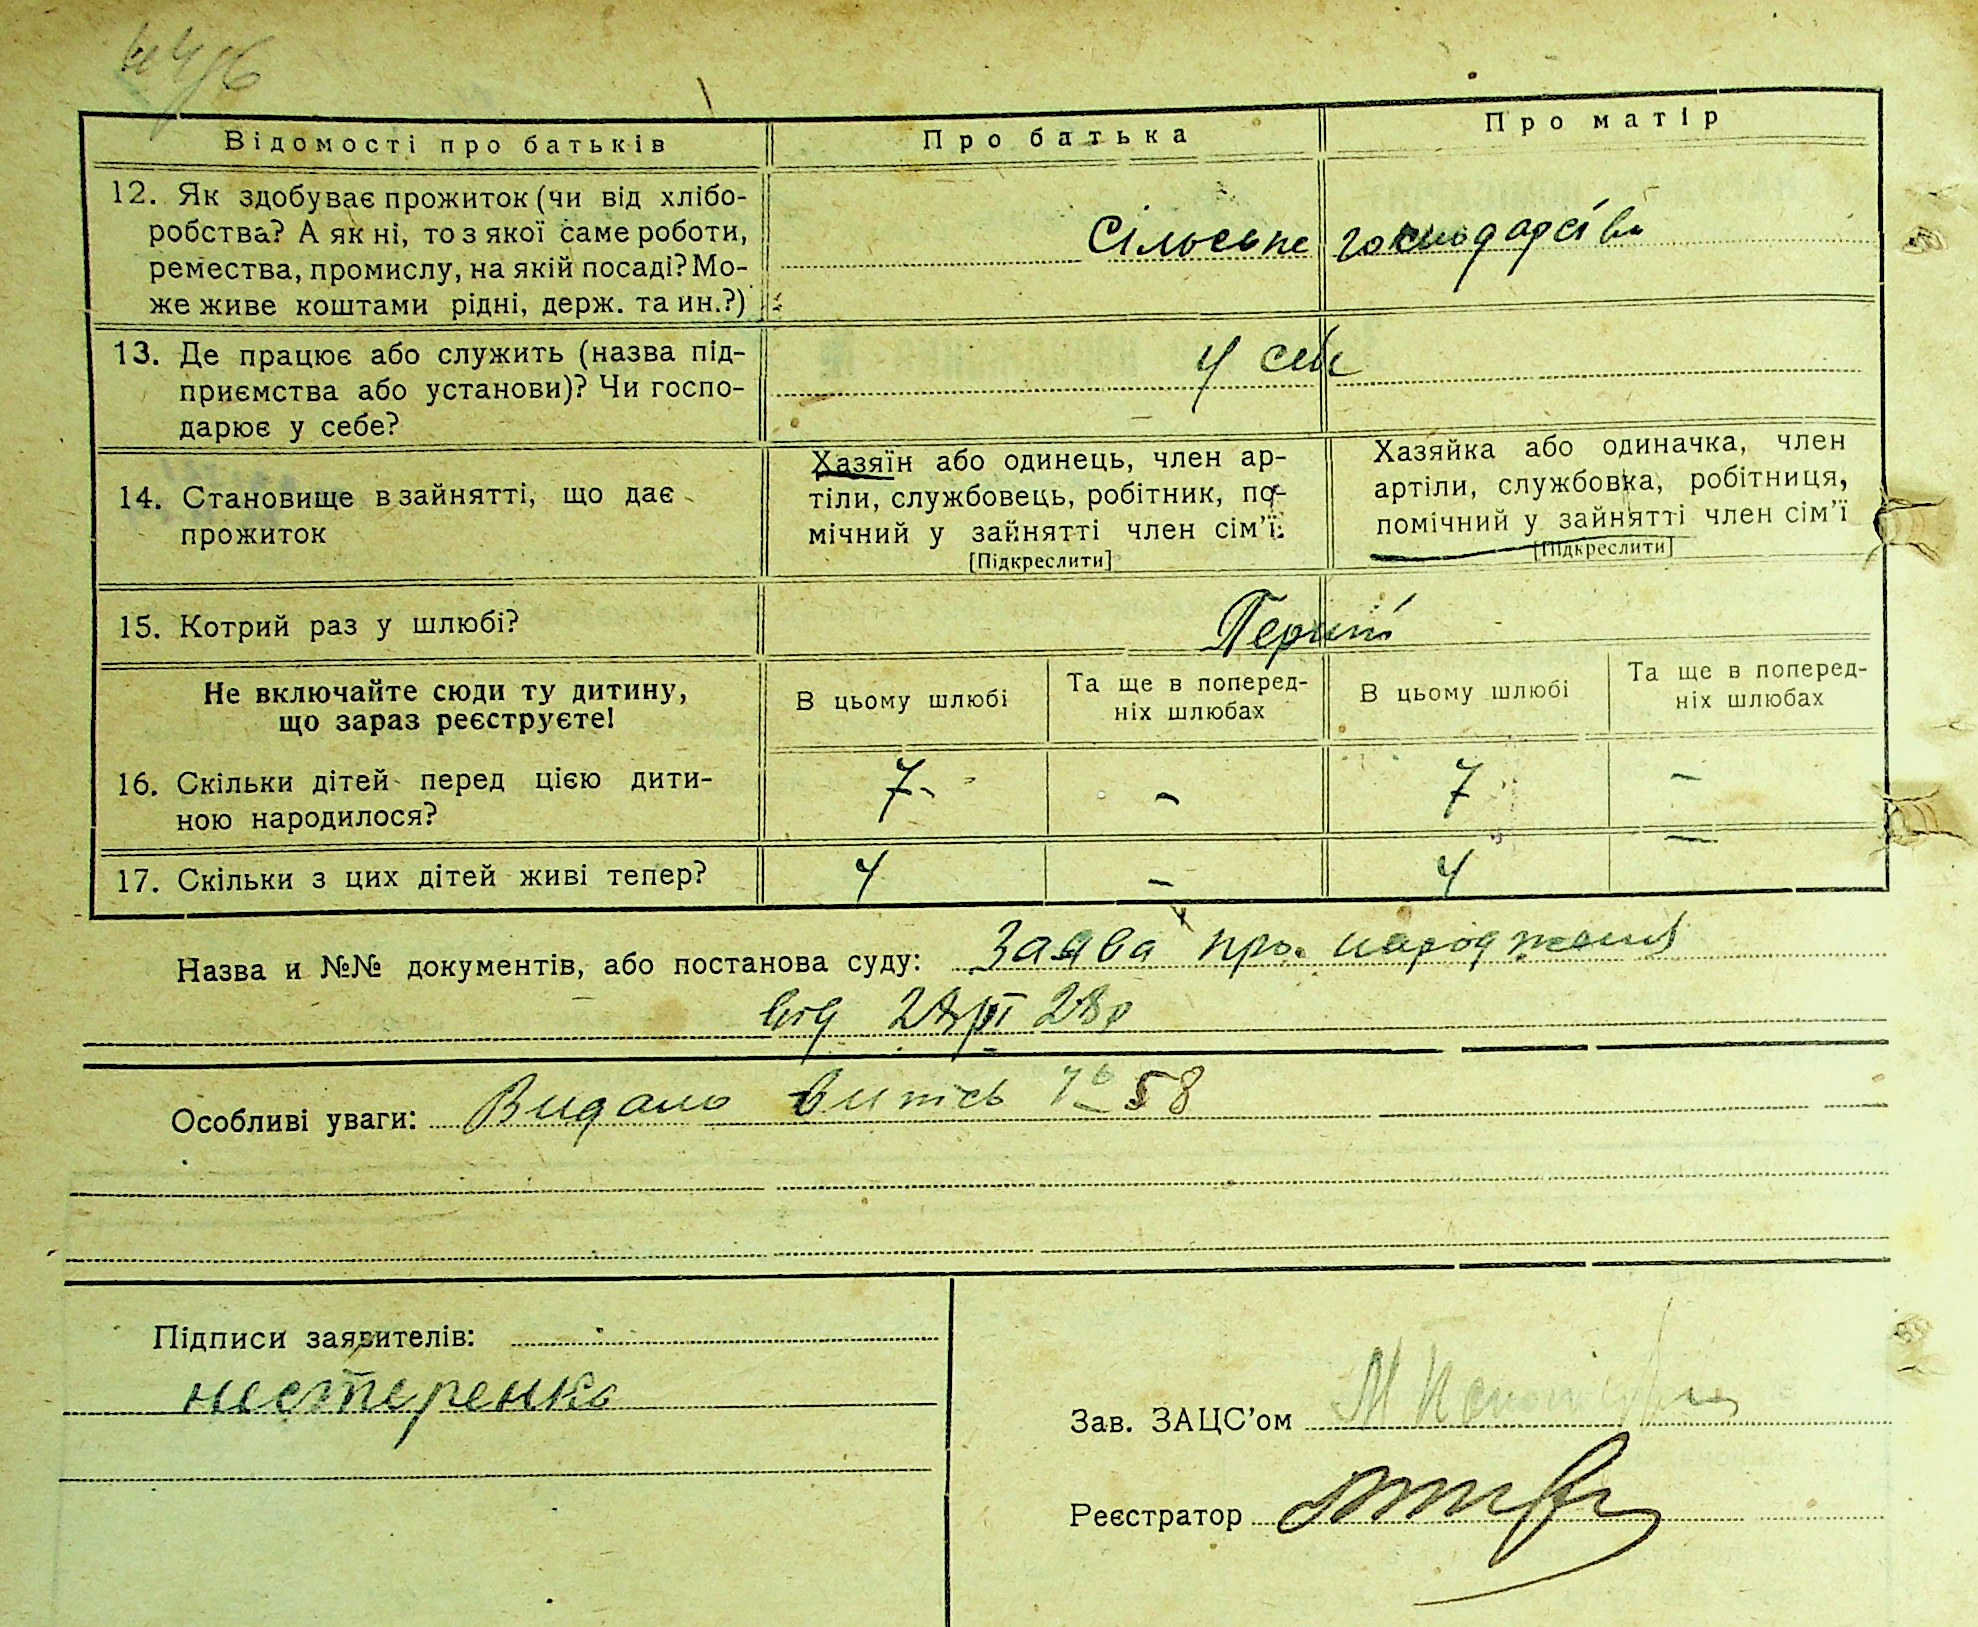 Відомості про батьків Про батька Про матір
12. Як здобуває прожиток (чи від хлібо-
робства? А як ні, то з якої саме роботи,
ремества, промислу, на якій посаді? Мо-
же живе коштами рідні, держ. та ин.?)
Сільське господарство
13. Де працює або служить (назва під-
приємства або установи)? Чи госпо-
дарює у себе?
у себе
14. Становище в зайнятті, що дає
прожиток
Хазяїн або одинець, член ар-
тіли, службовець, робітник, по-
мічний у зайнятті член сім'ї.
[Підкреслити]
Хазяйка або одиначка, член
артіли, службовка, робітниця,
помічний у зайнятті член сім'ї
[Підкреслити]
15. Котрий раз у шлюбі?
Перший
Не включайте сюди ту дитину,
що зараз реєструєте!
В цьому шлюбі
Та ще в поперед-
ніх шлюбах
В цьому шлюбі
Та ще в поперед-
ніх шлюбах
16. Скільки дітей перед цією дити-
ною народилося?
7 - - 7 -
17. Скільки з цих дітей живі тепер?
4 - 4 -
Назва и №№ документів, або постанова суду: Заява про народження
від 28р
Особливі уваги: Видано витісь № 58
Підписи заявителів:
нестеренко
Зав. ЗАЦС'ом
Реєстратор